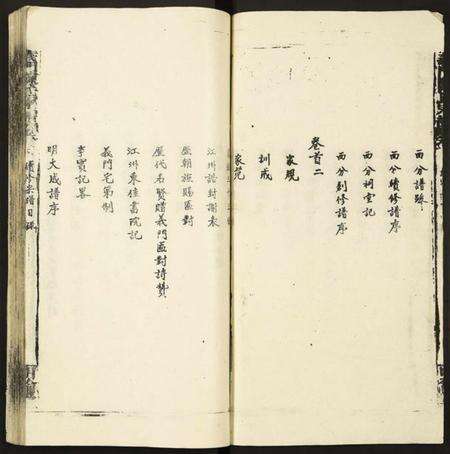 西分譜跋
西分續修譜序
西分祠堂記
西分創修譜序
卷首二
家規
訓戒
家範
江州譜對謝表
歷朝旌賜匾對
歷代名賢贈義門匾對詩贊
江州東佳書院記
義門宅第制
李賓記畧
明大成譜序